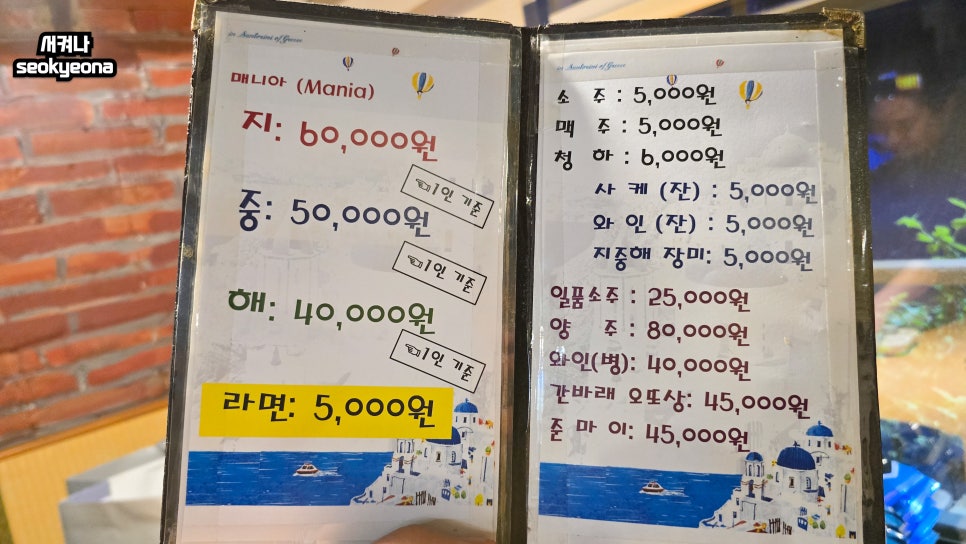 서켜나
seokyeona
매니아 (Mania)
지: 60,000원
☜1인 기준
중: 50,000원
☜1인 기준
해: 40,000원
☜1인 기준
라면: 5,000원
소 주 : 5,000원
맥 주 : 5,000원
청 하 : 6,000원
사 케 (잔) : 5,000원
와 인 (잔) : 5,000원
지중해 장미: 5,000원
일품소주 : 25,000원
양 주 : 80,000원
와인(병): 40,000원
간바래 오또상: 45,000원
준 마 이: 45,000원